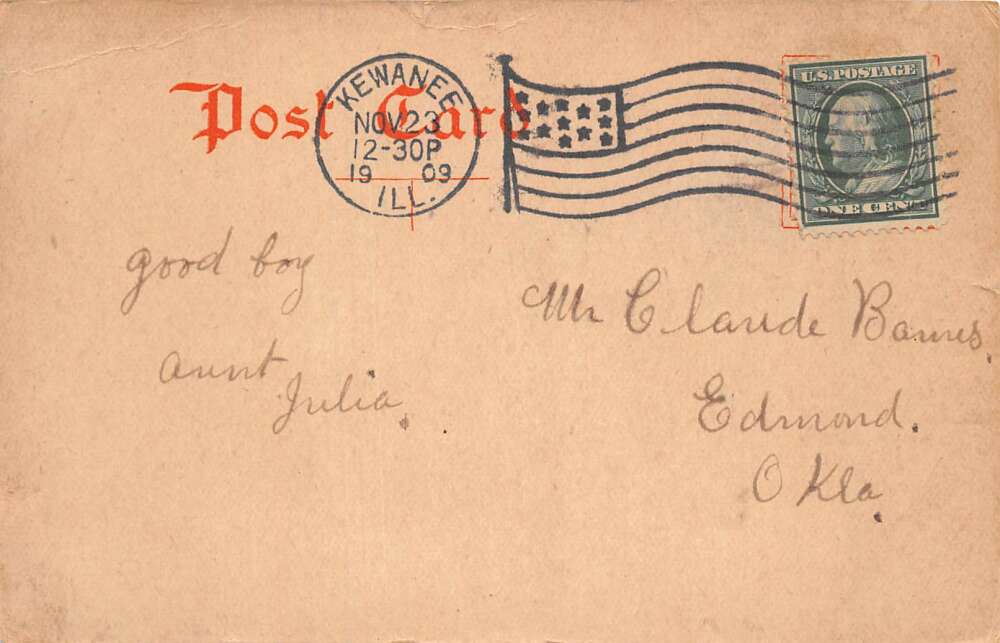 Post Card
KEWANEE
NOV 23
12-30P
1909
ILL.
U.S. POSTAGE
ONE CENT
good boy
aunt
Julia.
Mr Claude Barnes,
Edmond.
Okla.